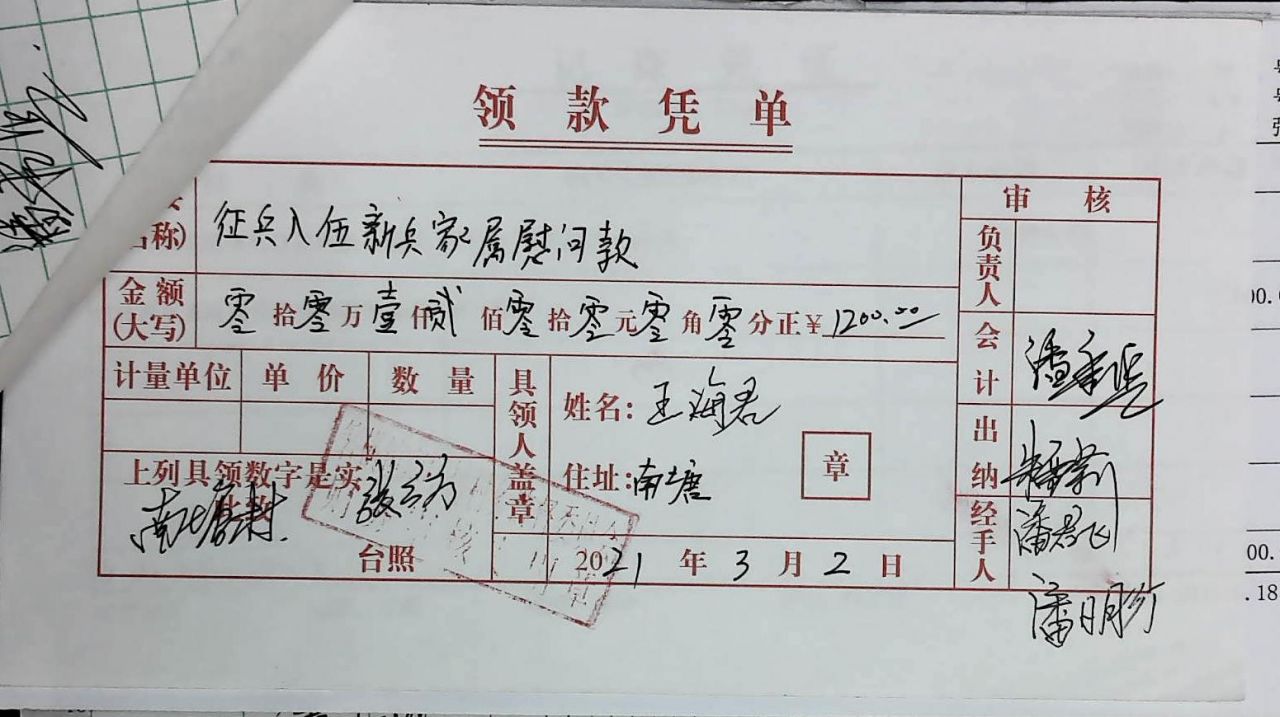 领款凭单
审核
名称) 征兵入伍新兵家属慰问款
负责人
金额(大写) 零拾零万壹仟贰佰零拾零元零角零分正¥1200.00
会计
计量单位 单价 数量
具领人盖章
姓名:王海君
住址:南塘
章
出纳
上列具领数字是实
南塘村
经手人 潘君飞
台照
2021年3月2日
00.
.18